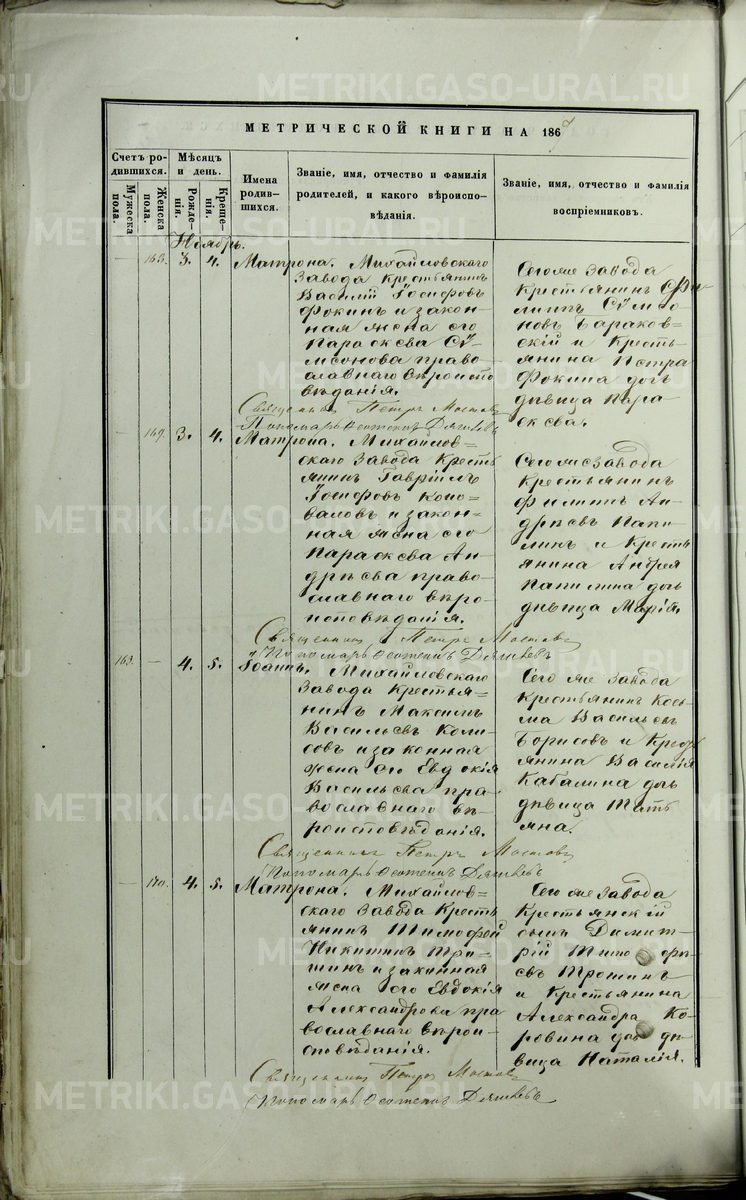 МЕТРИЧЕСКОЙ КНИГИ НА 1867
Счетъ ро-
дившихся.
Мужеска
пола.
Женска
пола.
Мѣсяцъ
и день.
Рожде-
нія.
Креще-
нія.
Имена
родив-
шихся.
Званіе, имя, отчество и фамилія
родителей, и какого вѣроиспо-
вѣданія.
Званіе, имя, отчество и фамилія
воспріемниковъ.
Ноябрь.
— 168. 3. 4. Матрона. Михайловскаго
завода крестьянинъ
Василій Іосифовъ
Фокинъ и закон-
ная жена его
Параскева Сѵ-
меонова право-
славнаго вѣроиспо
вѣданія.
Сего же завода
крестьянинъ Фи-
липпъ Сѵмео-
новъ Бараков-
скій и кресть-
янина Петра
Фокина дочь
дѣвица Пара-
скева.
Священникъ Петръ Мостовъ
Пономарь Ѳеоктистъ
— 169. 3. 4. Матрона. Михайлов-
скаго завода кресть
янинъ Гавріилъ
Іосифовъ Коно-
валовъ и закон-
ная жена его
Параскева Ан-
дреева право-
славнаго вѣро-
исповѣданія.
Сего же завода
крестьянинъ
Филиппъ Ан-
дреевъ Папи-
линъ и кресть
янина Андрея
Папилина дочь
дѣвица Марія.
Священникъ Петръ Мостовъ
Пономарь
163. — 4. 5. Іоаннъ. Михайловскаго
завода крестья-
нинъ Максимъ
Васильевъ Коли-
совъ и законная
жена его Евдокія
Васильева пра-
вославнаго вѣ-
роисповѣданія.
Сего же завода
крестьянинъ Кось-
ма Васильевъ
Борисовъ и крест
янина Василія
Кабалина дочь
дѣвица Тать
яна.
Священникъ Петръ Мостовъ
Пономарь
— 170. 4. 5. Матрона. Михайлов-
скаго завода кресть
янинъ Тимофей
Никитинъ Тро-
шинъ и законная
жена его Евдокія
Александрова пра
вославнаго вѣрои-
сповѣданія.
Сего же завода
крестьянскій
сынъ Димит-
рій Тимофе-
евъ Трошинъ
и крестьянина
Александра Ко-
ровина дочь дѣ-
вица Наталія.
Священникъ Петръ Мостовъ
Пономарь
METRIKI.GASO-URAL.RU